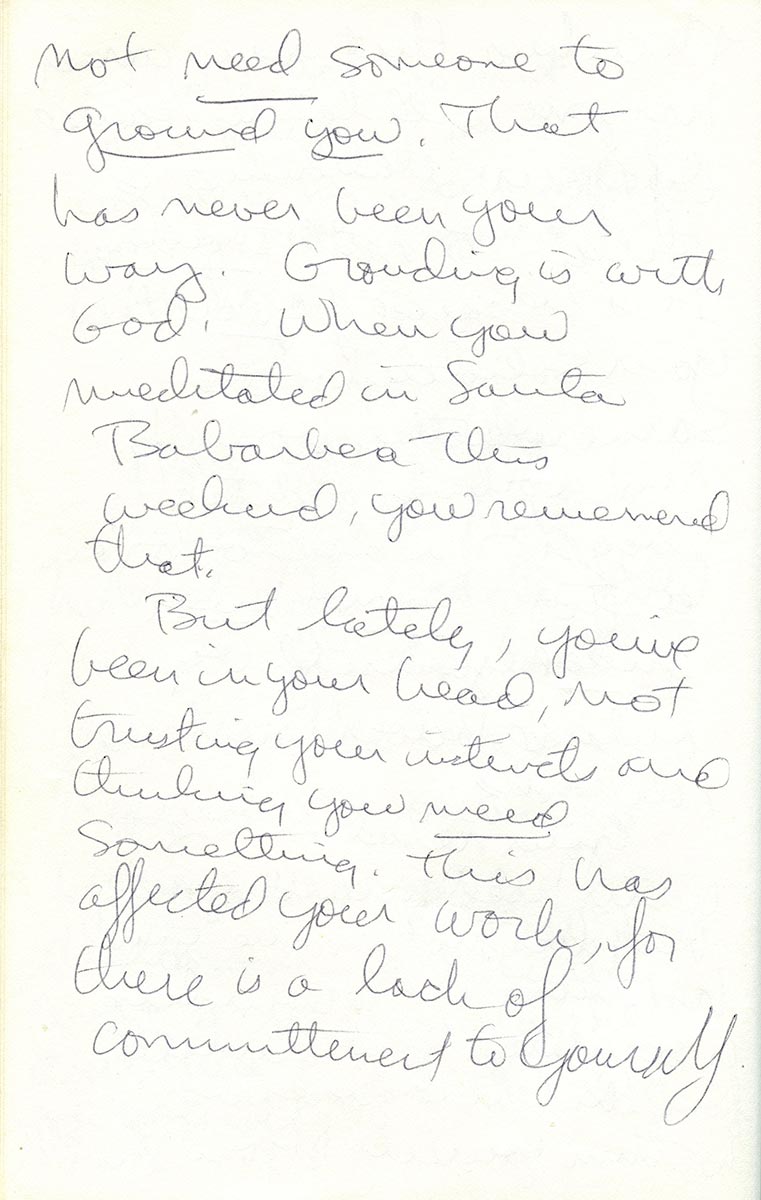 not need someone to
ground you. That
has never been your
way. Grouding is with
God. When you
meditated in Santa
Babarbea this
weekend, you rememered
that.
But lately, you've
been in your head, not
trusting your instincts and
thinking you need
something. This has
affected your work, for
there is a lack of
committement to yourself.